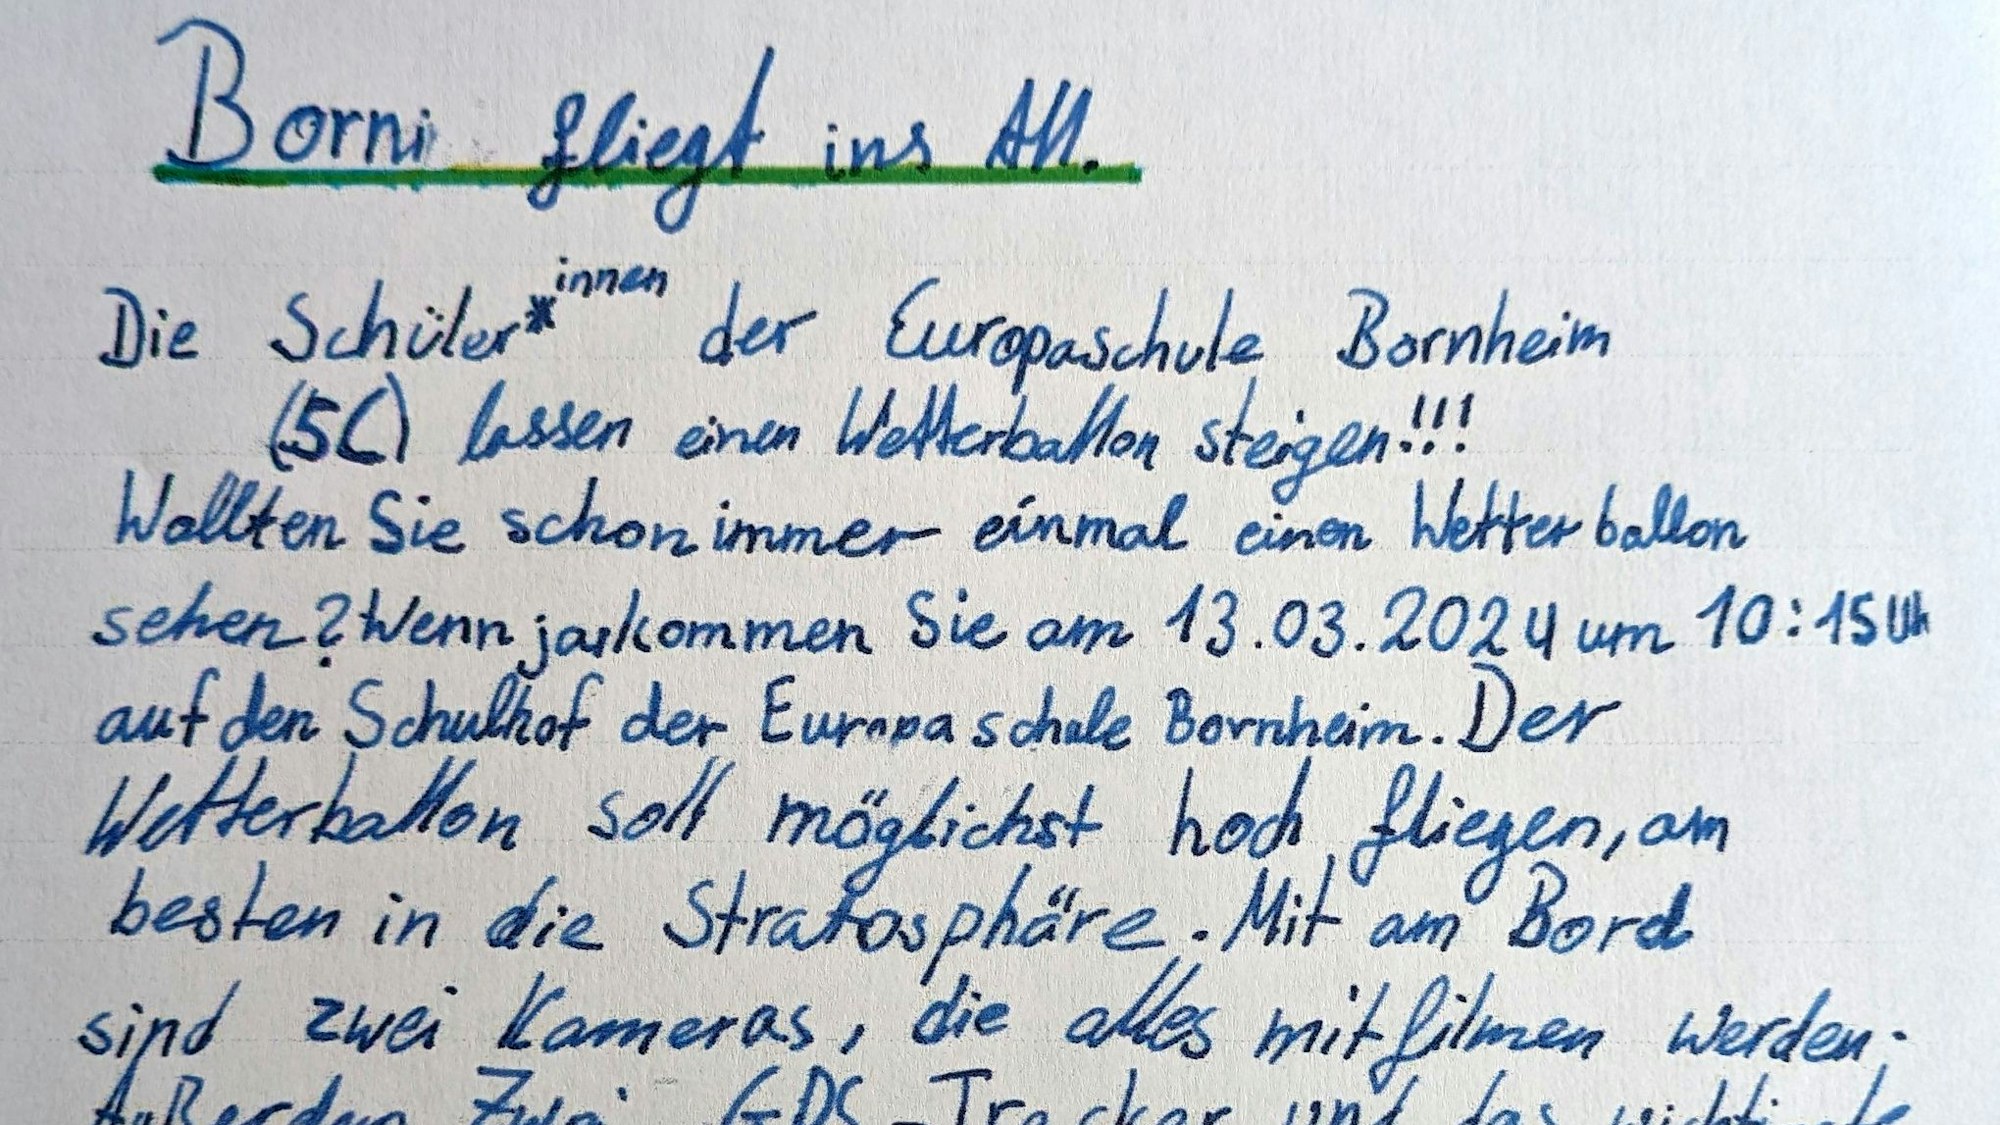 Borni fliegt ins All.
Die Schüler*innen der Europaschule Bornheim
(5C) lassen einen Wetterballon steigen!!!
Wollten Sie schon immer einmal einen Wetterballon
sehen? Wenn ja, kommen Sie am 13.03.2024 um 10:15 Uh
auf den Schulhof der Europaschule Bornheim. Der
Wetterballon soll möglichst hoch fliegen, am
besten in die Stratosphäre. Mit am Bord
sind zwei Kameras, die alles mitfilmen werden.
Außerdem zwei GPS-Tracker und das wichtigste